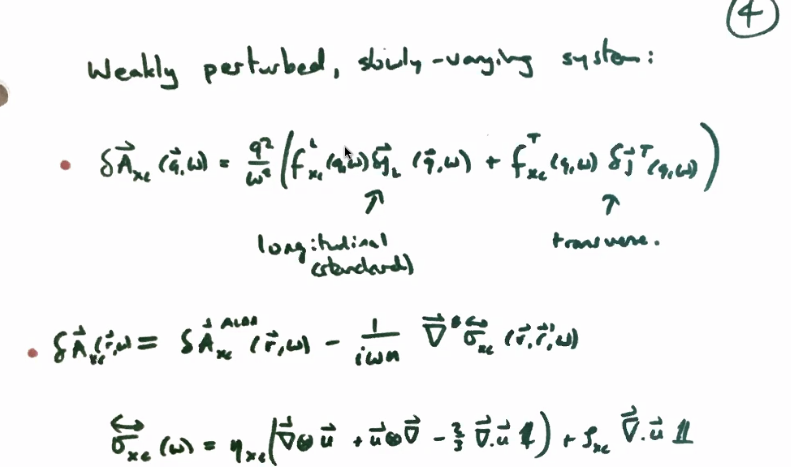 4
Weakly perturbed, slowly-varying system:
• δA⃗_xc (q⃗,ω) = q²/ω² (f_xc^L (q,ω) δj⃗_L (q⃗,ω) + f_xc^T (q,ω) δj⃗^T (q,ω))
↑ ↑
longitudinal transverse.
(standard)
• δA⃗_xc (r⃗,ω) = δA⃗_xc^ALDA (r⃗,ω) − 1/(iωn) ∇⃗·σ⃡_xc (r⃗,r⃗',ω)
σ⃡_xc (ω) = η_xc (∇⃗⊗u⃗ + u⃗⊗∇⃗ − 2/3 ∇⃗.u⃗ 𝟙) + ζ_xc ∇⃗.u⃗ 𝟙